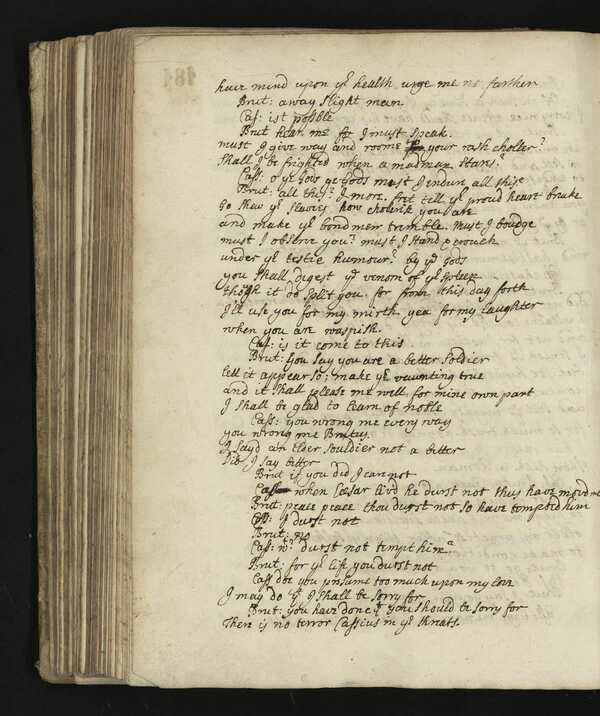 have mind upon yr health urge me no farther
Brut: away slight man
Cass: ist possble
Brut hear me for I must speak.
must I give way and roome to your rash choller?
Shall I be frighted when a madman stars?
Cass: o ye Gods ye Gods must I endure all this
Brut: all this? I more. fret till yr proud heart brake
Go shew yr slaves how cholerik you are
and make yr bondmen tremble. Must I boudge
must I observe you? must I stand & crouch
under yr testie humour? by ye gods
you shall digest ye venom of yr spleen
though it do split you. for from this day forth
I'll use you for my mirth yea for my laughter
when you are waspish.
Cass: is it come to this
Brut: you say you are a better soldier
lett it appear so; make yr vaunting true
and it shall please me well, for mine own part
I shall be glad to learn of noble
Cass: you wrong me every way
you wrong me Brutus.
I sayd an Elder souldier not a better
Did I say better
Brut if you did I care not
Cass when Cæsar liv'd he durst not thus have moved me
Brut: peace peace thou durst not so have tempted him
Cass: I durst not
Brut: No
Cass: wt durst not tempt him?
Brut: for yr life you durst not
Cass doe you presume too much upon my love
I may do yt I shall be sorry for
Brut: you have done yt you should be sorry for
There is no terror Cassius in yr threats.